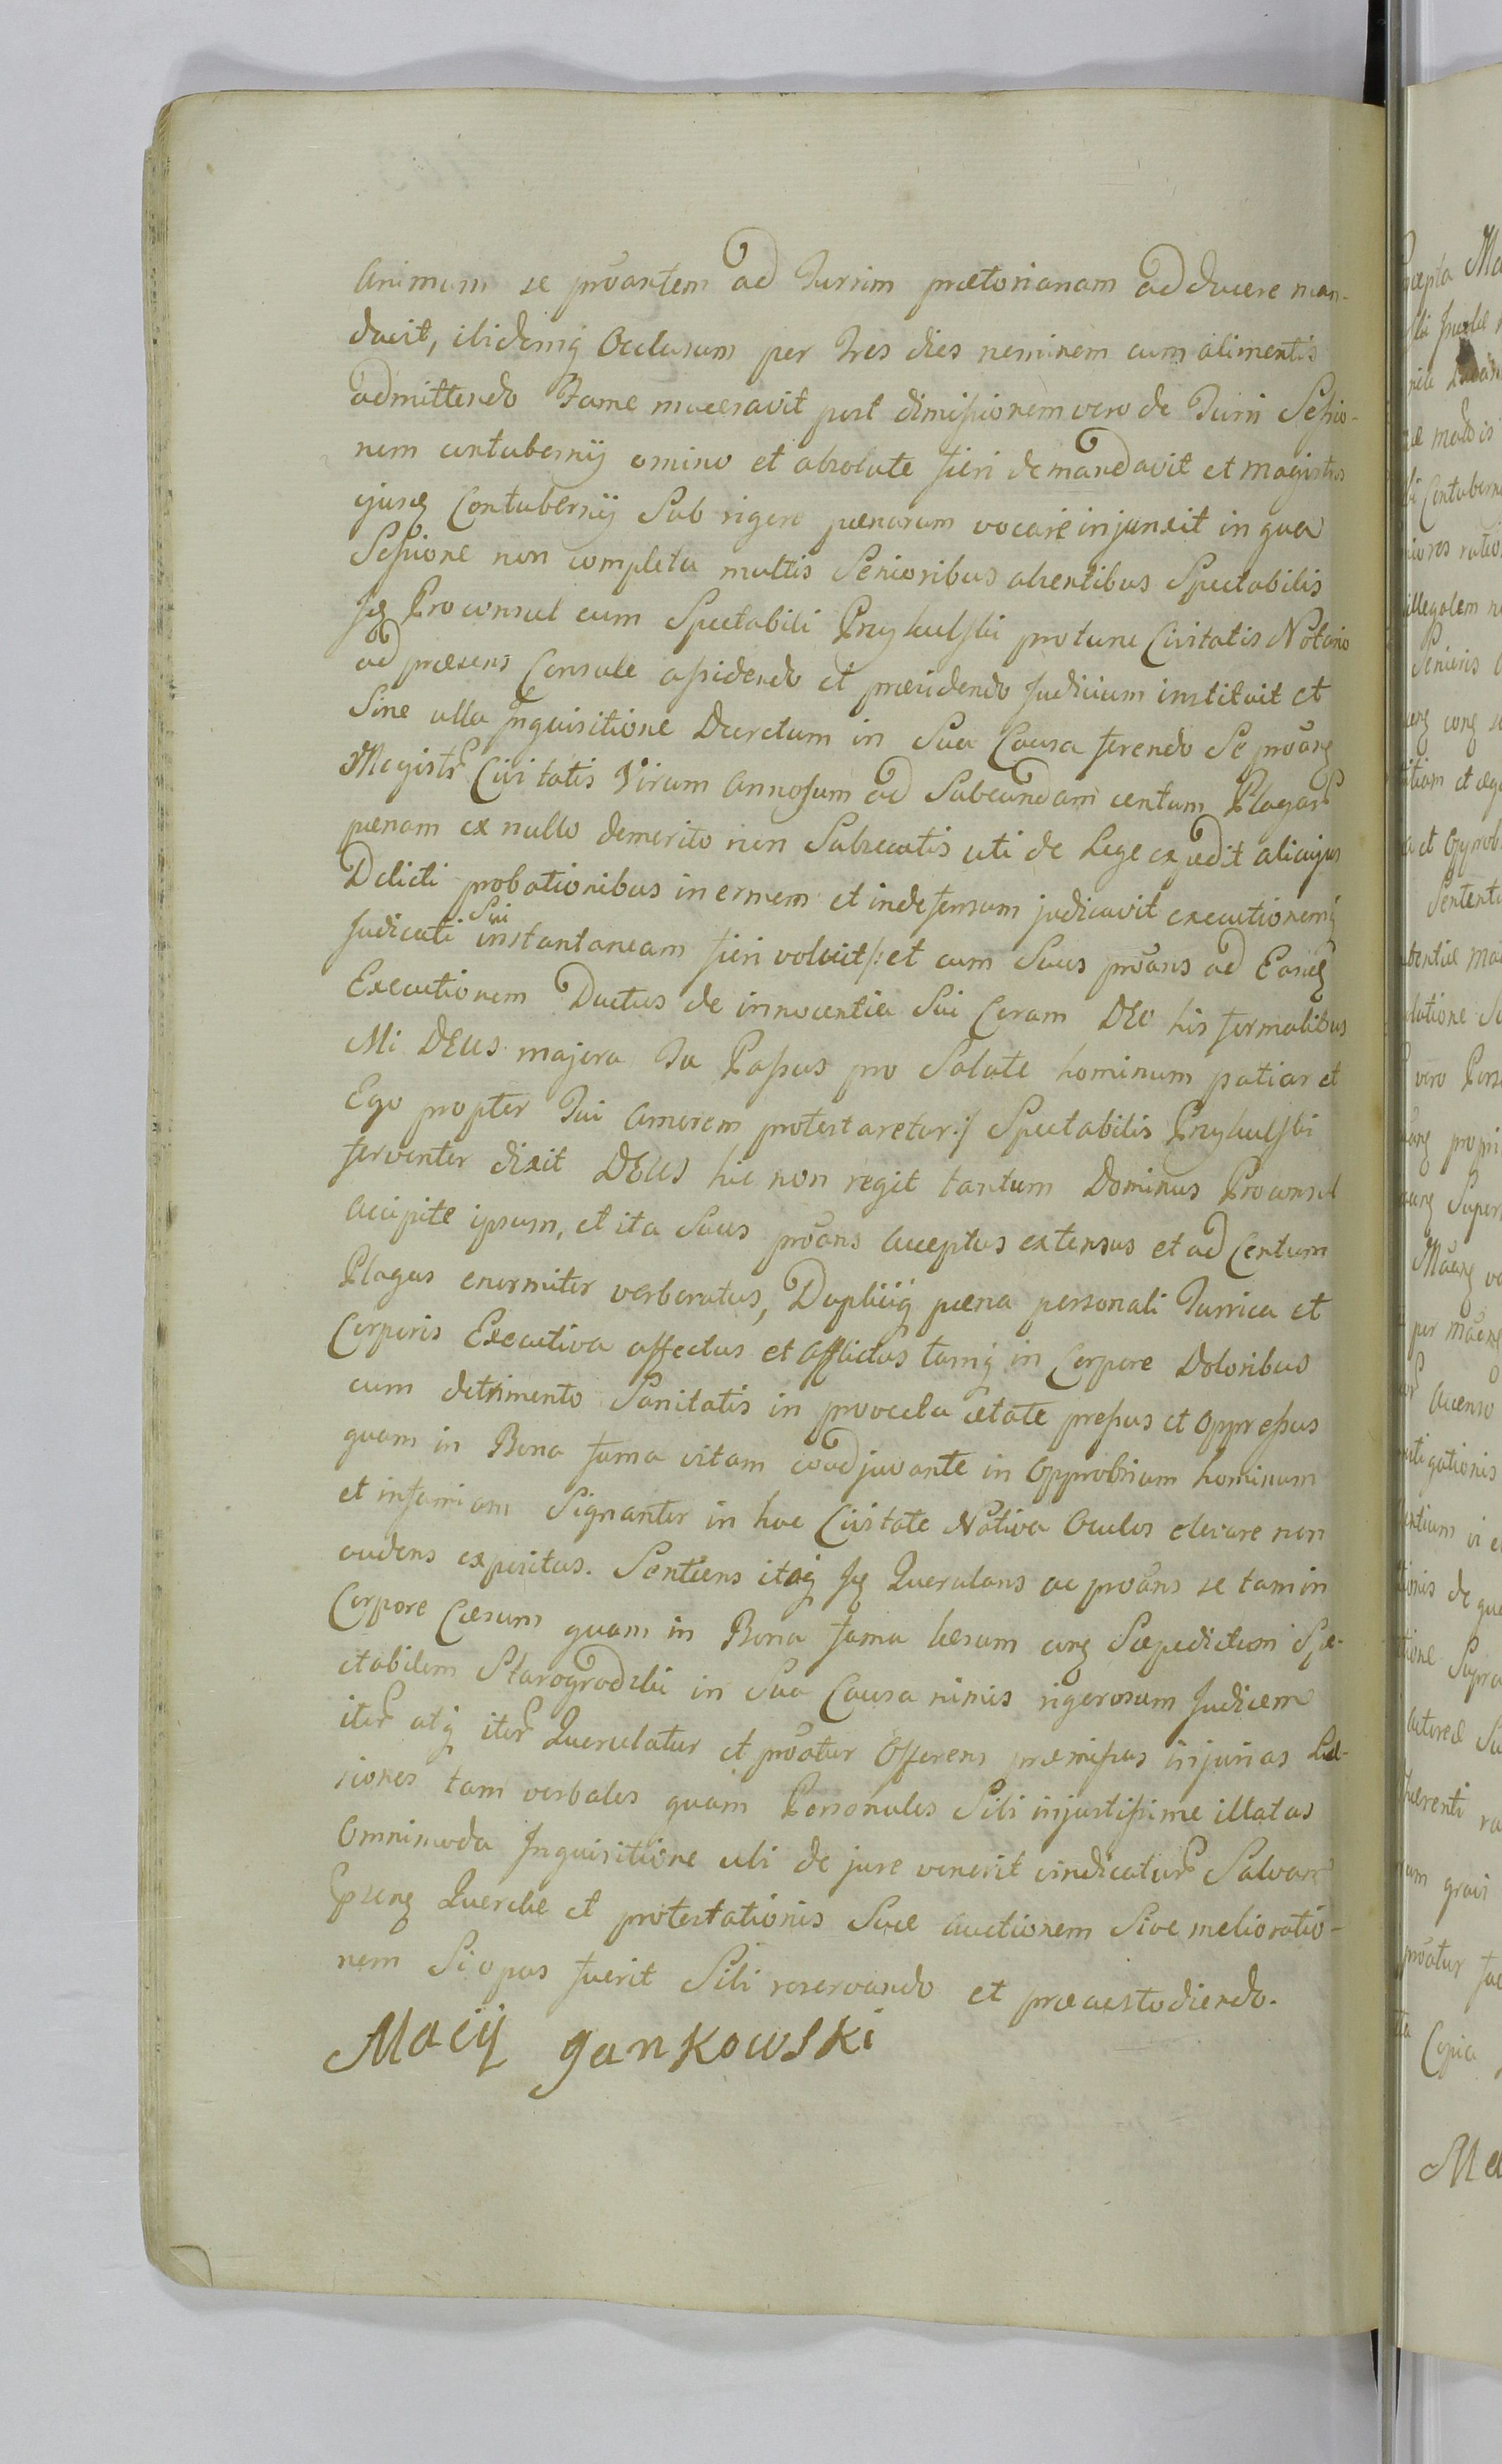 Animum se prõantem ad Turrim prætorianam adducere man-
davit, ibidemq Occlusum per Tres dies neminem cum alimentis
admittendo Fame maceravit post dimissionem vero de Turri Sessio-
nem contubernij omino et absolute fieri demandavit et magistros
ejusq Contubernij Sub rigore pænarum vocare injunxit in qua
Sessione non completa multis Senioribus absentibus Spectabilis
Jq Proconsul cum Spectabili Przykulski protunc Civitatis Notario
ad præsens Consule assidendo et præsidendo Judicium instituit et
Sine ulla Inquisitione Decretum in Sua Causa ferendo Se prõanq
Magistr Civitatis Virum Annosum ad Subeundam centum Plagar
pænam ex nullo demerito non Subsecutis uti de Lege expedit alicujus
Delicti probationibus inermem et indefensum judicavit executionemq
Judicati Sui instantaneam fieri voluit /: et cum Suus prõans ad Eanq
Executionem Ductus de innocentia Sui Coram DEO his formalibus
Mi DEUS majora Tu Passus pro Salute hominum patiar et
Ego propter Tui Amorem protestaretur :/ Spectabilis Przykulski
ferventer dixit DEUS hic non regit tantum Dominus Proconsul
accipite ipsum, et ita Suus prõans acceptus extensus et ad Centum
Plagas enormiter verberatus, Dupliciq pæna personali Turrica et
Corporis Executiva affectus et Afflictus tamq in Corpore Doloribus
cum detrimento Sanitatis in provecta ætate pressus et oppressus
quam in Bona fama vitam coadjuvante in Opprobrium hominum
et infamiam Signanter in hac Civitate Nativa Oculos elevare non
audens expositus. Sentiens itaq Jq Querulans ac prõans se tam in
Corpore Cæsum quam in Bona fama læsum cong Sæpedictum Spe-
ctabilem Starogrodzki in Sua Causa nimis rigorosum Judicem
iter atq iter Querulatur et prõatur Offerens præmissas injurias Læ-
siones tam verbales quam Personales Sibi injustissime illatas
Omnimoda Inquisitione ubi de jure venerit vindicatur Salvam
Ipsenq Querelæ et protestationis Suæ auctionem Sive melioratio-
nem Si opus fuerit Sibi reservando et præcustodiendo.
Macij Jankowski